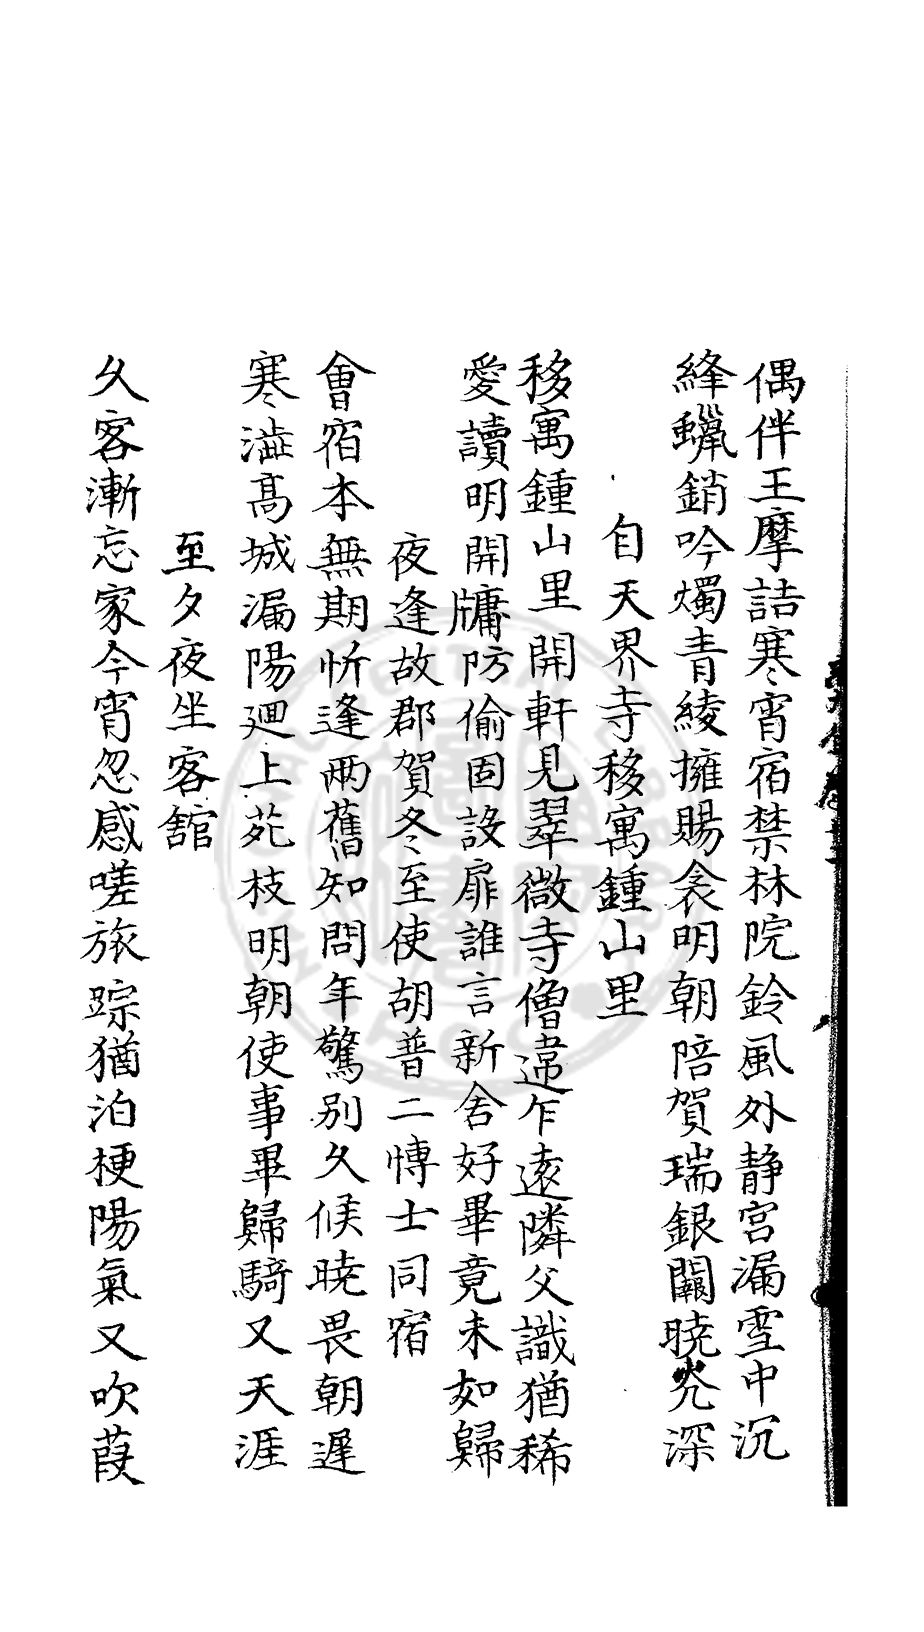 偶伴王摩詰寒宵宿禁林院鈴風外静宫漏雪中沉
絳蠟銷吟燭青綾擁賜衾明朝陪賀瑞銀闕曉光深
自天界寺移寓鍾山里
移寓鍾山里開軒見翠微寺僧違乍遠隣父識猶稀
愛讀明開牗防偷固設扉誰言新舍好畢竟未如歸
夜逢故郡賀冬至使胡普二愽士同宿
會宿本無期忻逢兩舊知問年驚别久候曉畏朝遲
寒澁髙城漏陽廻上苑枝明朝使事畢歸騎又天涯
至夕夜坐客舘
久客漸忘家今宵忽感嗟旅踪猶泊梗陽氣又吹葭